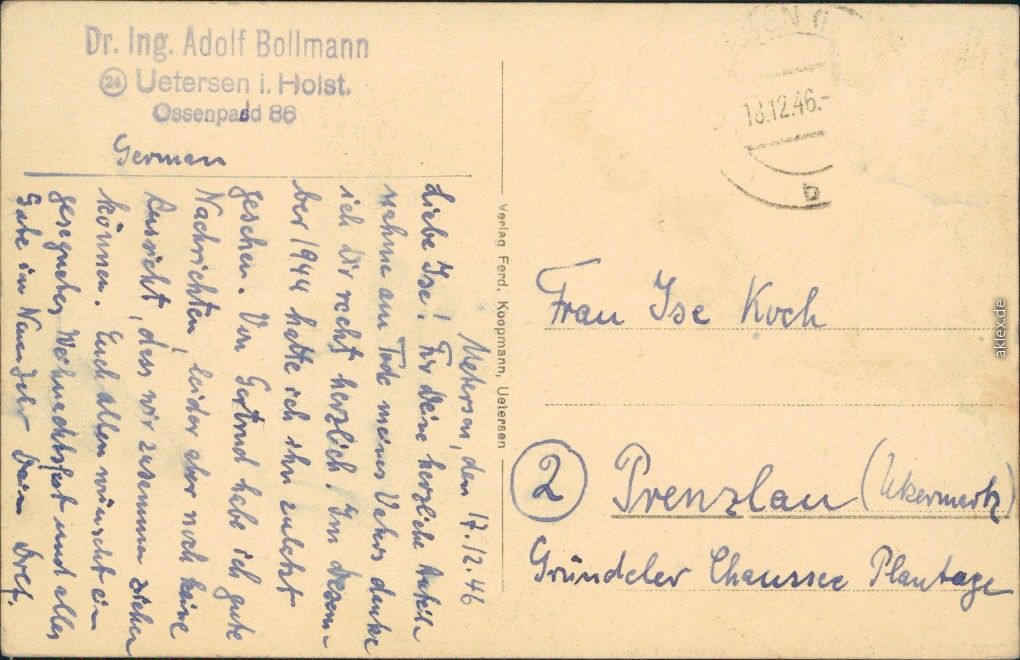 Dr. Ing. Adolf Bollmann
24 Uetersen i. Holst.
Ossenpadd 86
German
Uetersen, den 17.12.46
Liebe Ise! Für Deine herzliche Anteil-
nahme am Tode meines Vaters danke
ich Dir recht herzlich. Im Dezem-
ber 1944 hatte ich ihn zuletzt
gesehen. Von Gertrud habe ich gute
Nachrichten, leider aber noch keine
Aussicht, dass wir zusammen ziehen
können. Euch allen wünscht ein
gesegnetes Weihnachtsfest und alles
Gute im Neuen Jahr Dein
Verlag Ferd. Koopmann, Uetersen
18.12.46.-
b
Frau Ise Koch
2 Prenzlau (Ukermark)
Gründeler Chaussee Plantage
aklex.de